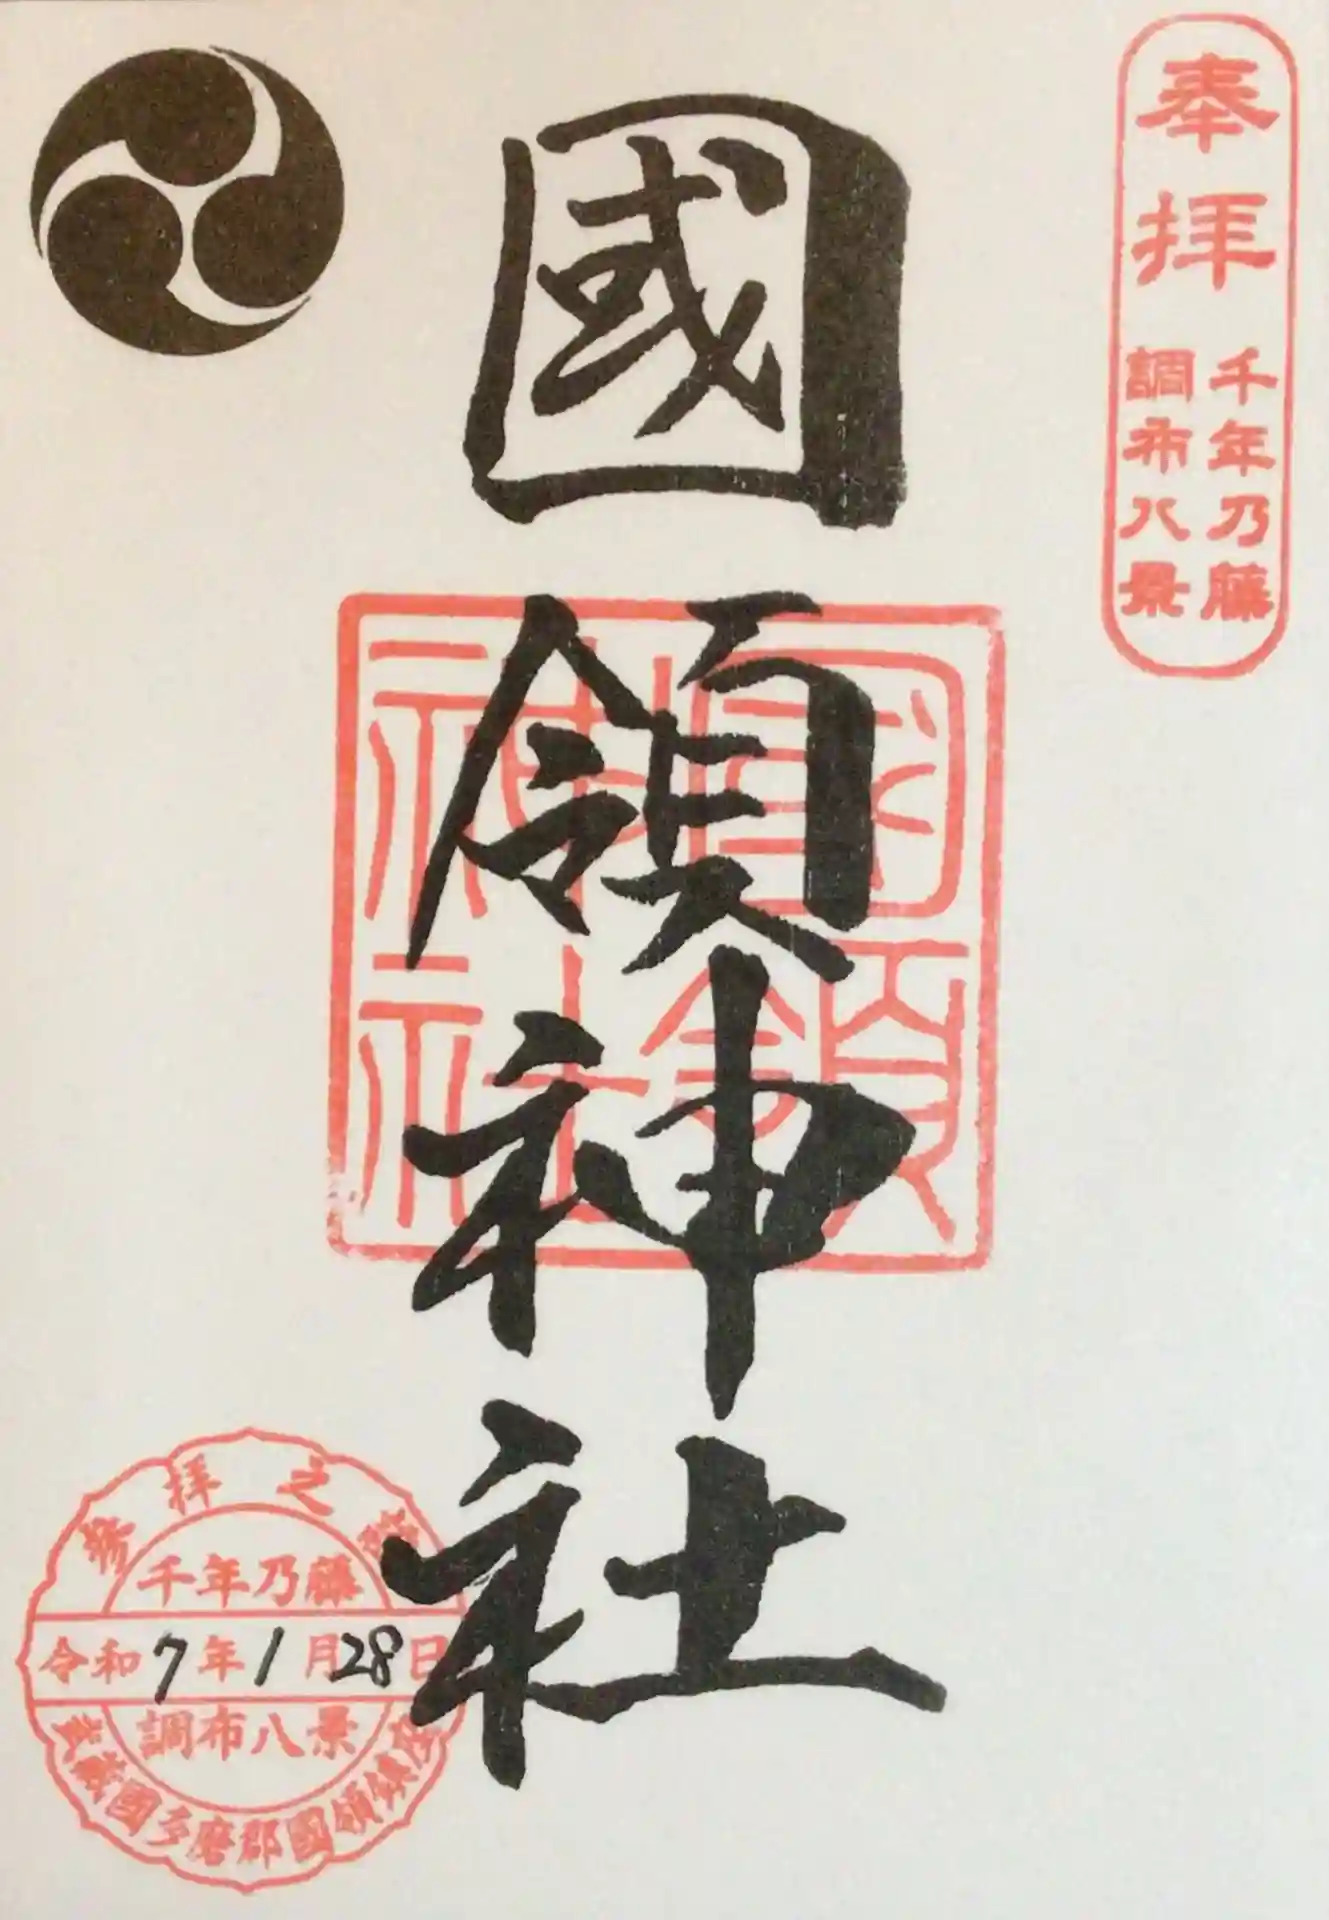 奉拝
千年乃藤
調布八景
國領神社
國領神社
参拝之證
千年乃藤
令和7年1月28日
調布八景
武蔵國多磨郡國領鎮座